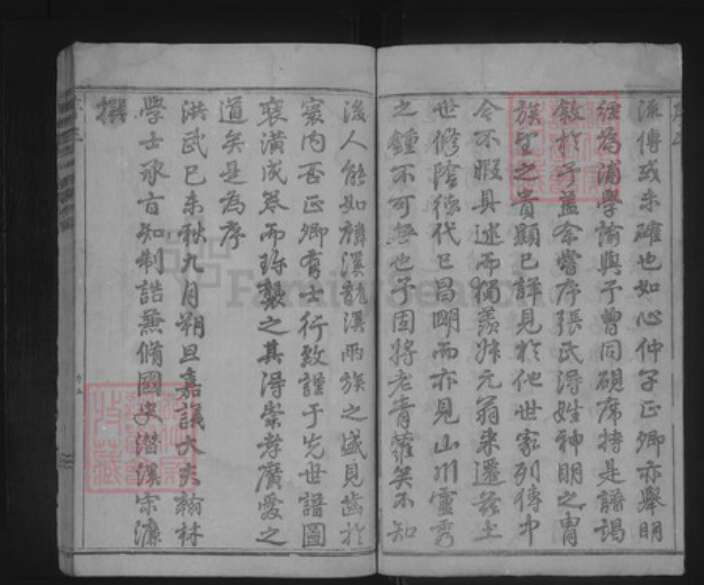 流傳或未確也如心仲子正卿亦舉明
經為浦學諭與予曾同硯席持是譜謁
敘於予蓋余嘗序張氏得姓神明之胄
族望之貴顯已詳見於他世家列傳中
令不暇具述而獨羨姊元翁來遷茲土
世修陰德代已昌明而亦見山川靈秀
之鍾不可無也予固將老青蘿矣不知
後人能如麟溪龍溪兩族之盛見齒於
寰內否正卿有士行致謹于先世譜圖
裒潢成帙而珍襲之其得崇孝廣愛之
道矣是為序
洪武己未秋九月朔旦嘉議大夫翰林
學士承旨知制誥兼脩國史潛溪宋濂
撰
FamilySearch